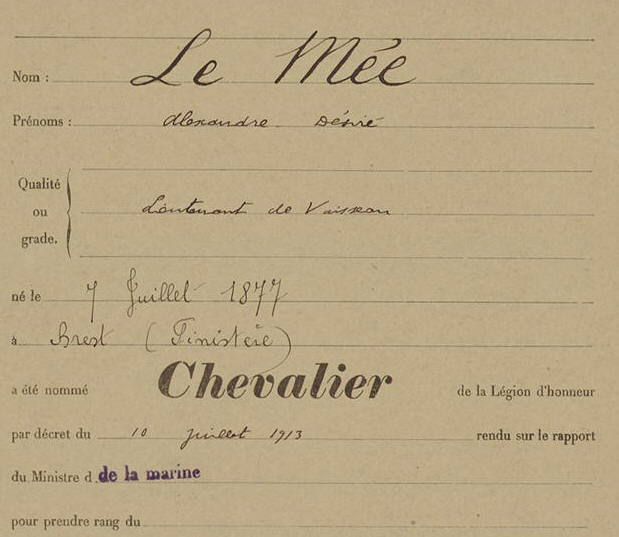 Nom : Le Mée
Prénoms : Alexandre Désiré
Qualité
ou
grade.
Lieutenant de Vaisseau
né le 7 Juillet 1877
à Brest (Finistère)
a été nommé Chevalier de la Légion d'honneur
par décret du 10 juillet 1913 rendu sur le rapport
du Ministre d de la marine
pour prendre rang du